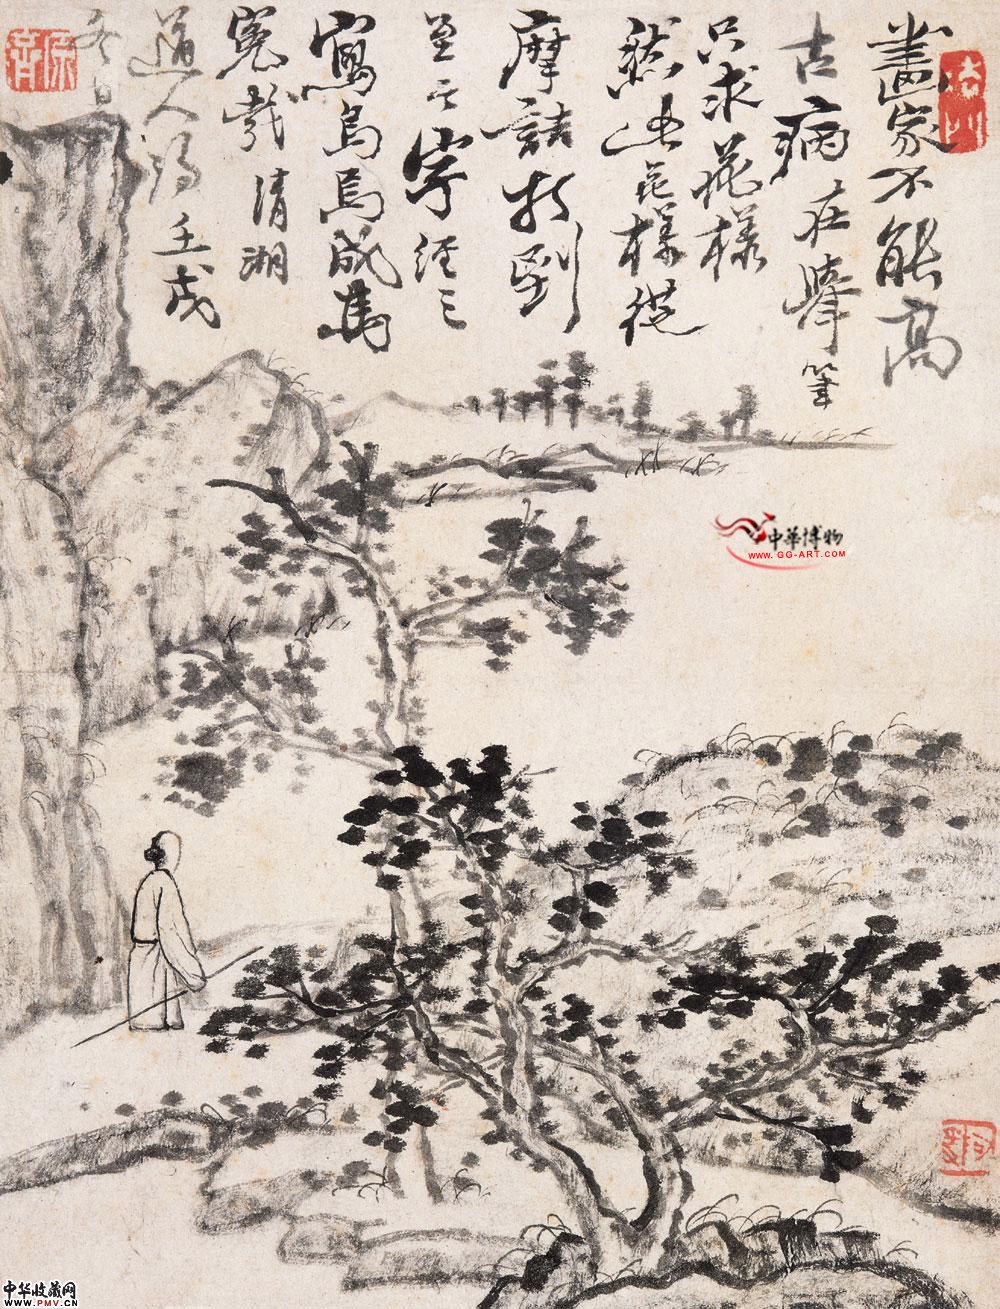 畫家不能高
古病在舉筆
只求花樣
然此花樣從
摩詰打到
至今字經三
寫烏焉成馬
冤哉清湘
道人濟壬戌
冬日
中華博物
WWW.GG-ART.COM
中华收藏网
WWW.PMV.CN